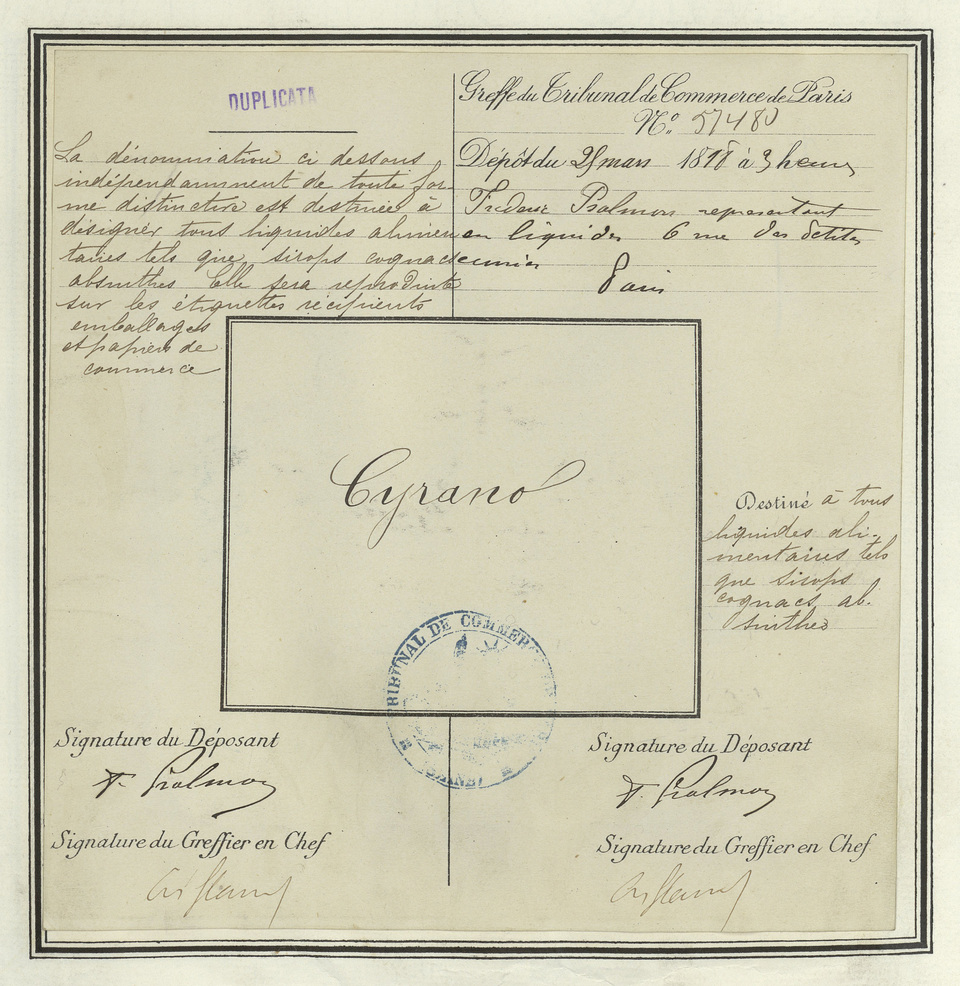 DUPLICATA
La dénomination ci dessous
indépendamment de toute for-
me distinctive est destinée à
désigner tous liquides alimen
taires tels que, sirops cognacs
absinthes Elle sera reproduite
sur les étiquettes récipients
emballages
et papiers de
commerce
Greffe du Tribunal de Commerce de Paris
N.º 57480
Dépôt du mars à 3 heures
Psalmon representant
en liquides 6 rue des petites
ecuries
Paris
Cyrano
Destiné à tous
liquides ali-
mentaires tels
que sirops
cognacs, ab-
sinthes
TRIBUNAL DE COMMERCE
(SEINE)
Signature du Déposant
Signature du Déposant
Signature du Greffier en Chef
Signature du Greffier en Chef